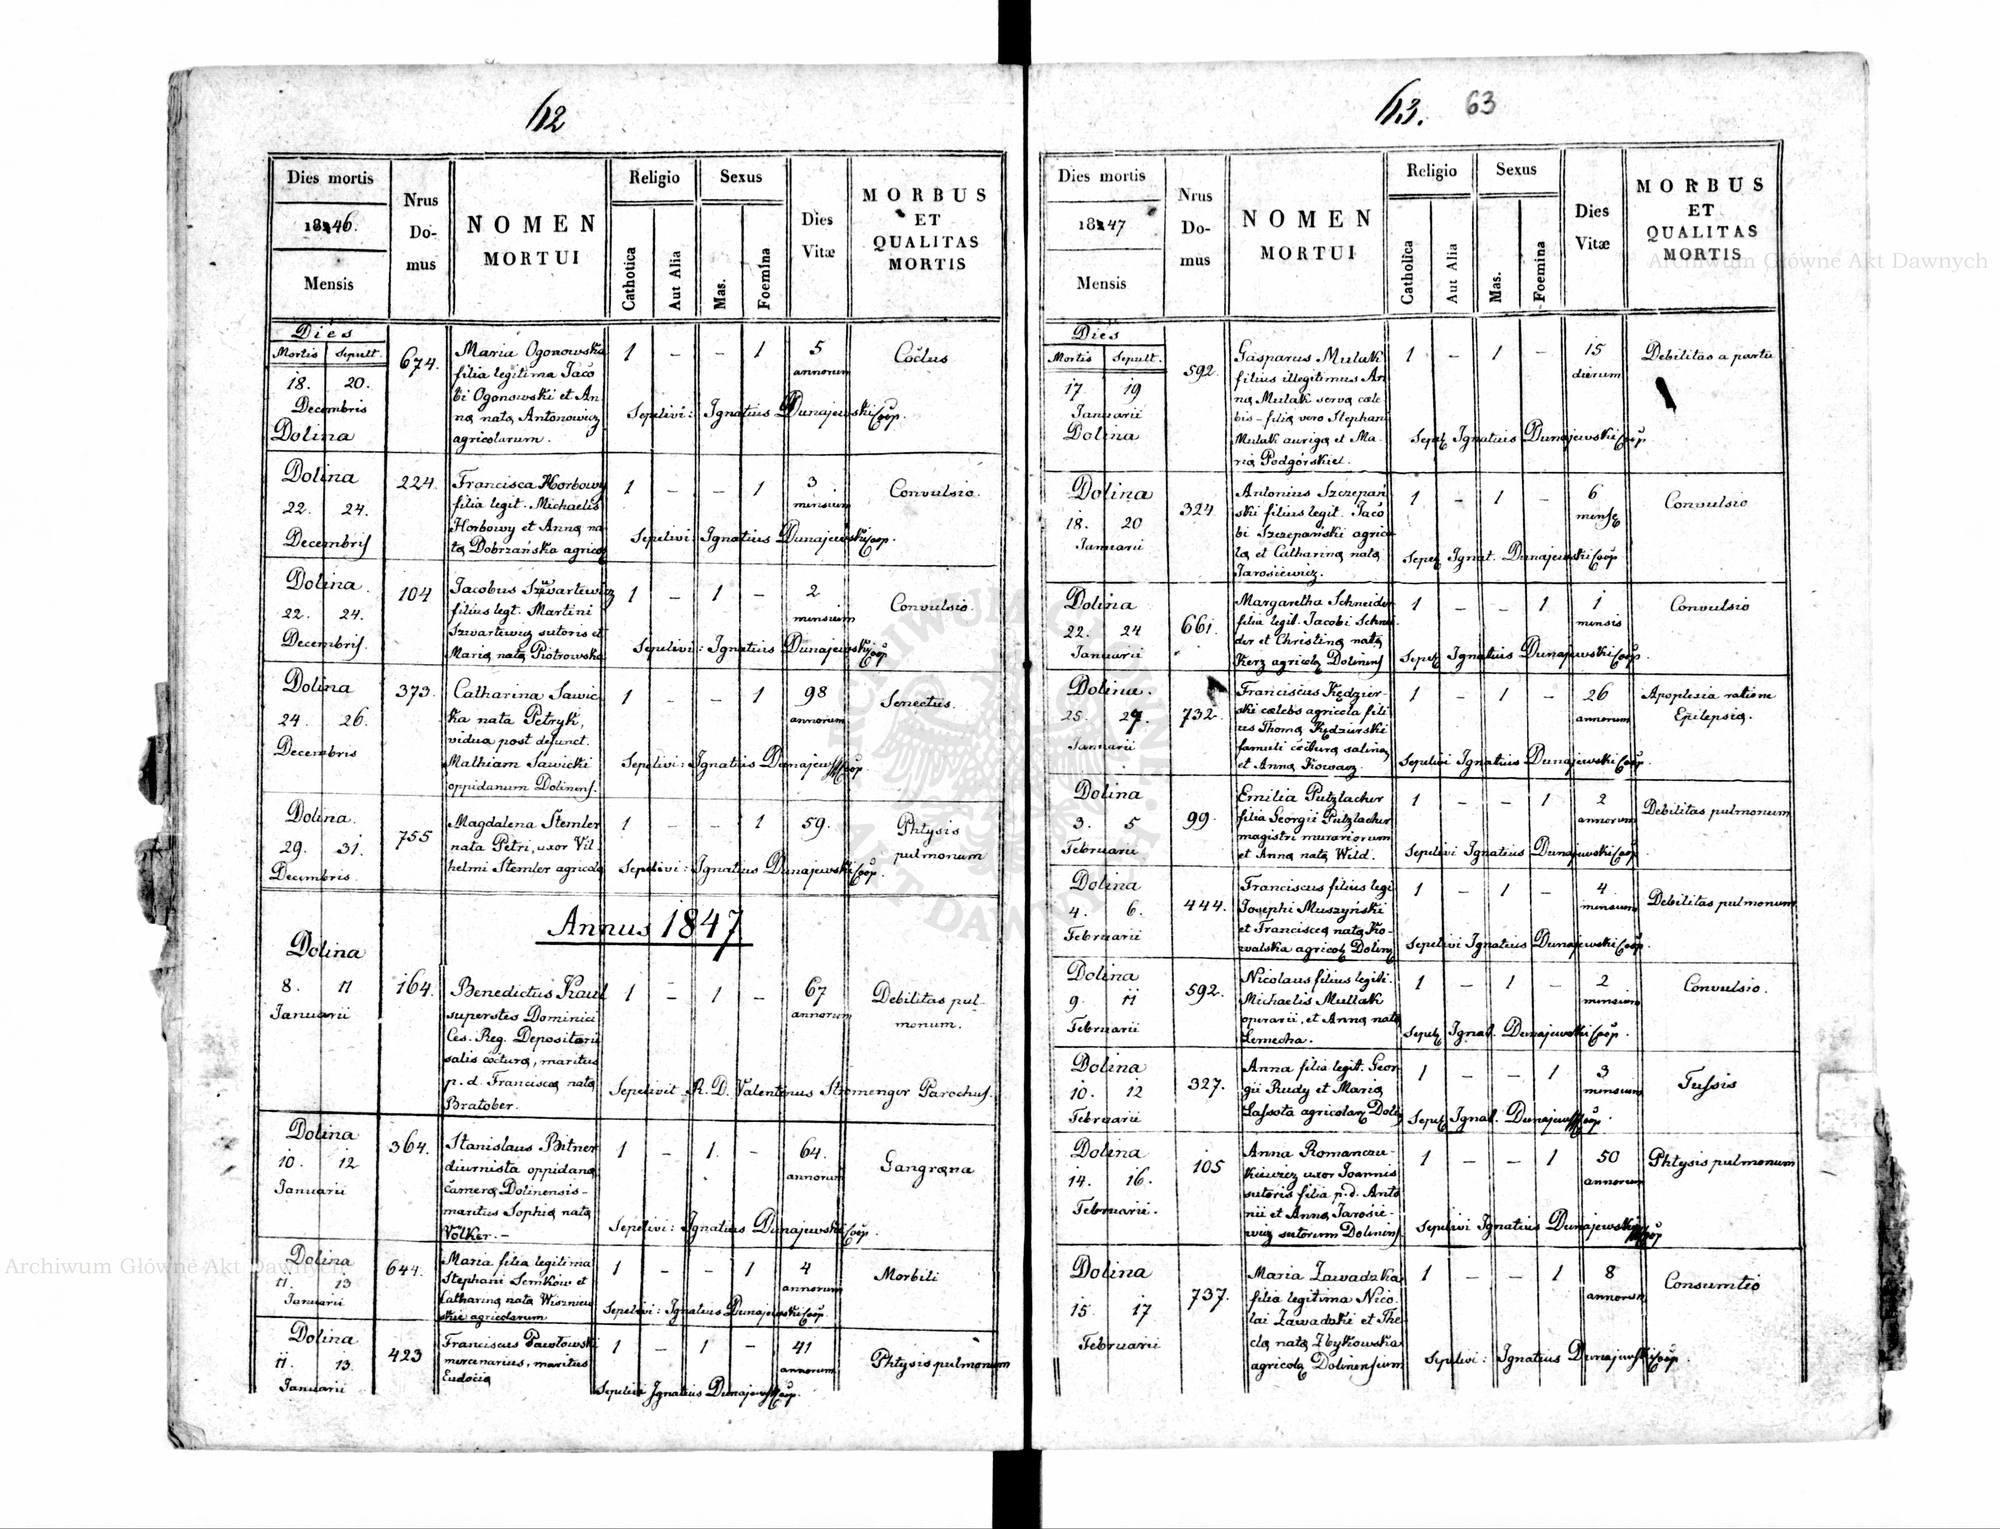 62
Dies mortis
1846.
Mensis
Nrus
Do-
mus
NOMEN
MORTUI
Religio
Catholica
Aut Alia
Sexus
Mas.
Foemina
Dies
Vitæ
MORBUS
ET
QUALITAS
MORTIS
Dies
Mortis Sepult.
18. 20.
Decembris
Dolina
674.
Maria Ogonowska
filia legitima Jaco
bi Ogonowski et An-
na nata Antonowicz
agricolarum.
1 - - 1
5
annorum
Coctus
Sepelivi: Ignatius Dunajewski Coop.
Dolina
22. 24.
Decembris
224.
Francisca Horbowy
filia legit. Michaelis
Horbowy et Anna na
ta Dobrzańska agricol
1 - - 1
3
mensium
Convulsio.
Sepelivi: Ignatius Dunajewski Coop.
Dolina
22. 24.
Decembris.
104
Jacobus Szwartewicz
filius legt. Martini
Szwartewicz sutoris et
Maria nata Piotrowska
1 - 1 -
2
mensium
Convulsio.
Sepelivi: Ignatius Dunajewski Coop
Dolina
24. 26.
Decembris
373.
Catharina Sawic
ka nata Petryk,
vidua post defunct.
Mathiam Sawicki
oppidanum Dolinens.
1 - - 1
98
annorum
Senectus.
Sepelivi: Ignatius Dunajewski Coop.
Dolina.
29. 31.
Decembris.
755
Magdalena Stemler
nata Petri, uxor Vil
helmi Stemler agricola
1 - - 1
59.
Phtysis
pulmonum
Sepelivi: Ignatius Dunajewski Coop.
Annus 1847
Dolina
8. 11
Januarii
164.
Benedictus Kaul
superstes Dominici
Ces. Reg. Depositarii
salis coctura, maritus
p. d. Francisca nata
Bratober.
1 - 1 -
67
annorum
Debilitas pul-
monum.
Sepelivit R. D. Valentinus Stromenger Parochus.
Dolina
10. 12
Januarii
364.
Stanislaus Bitner
diurnista oppidana
camera Dolinensis -
maritus Sophia nata
Völker. -
1 - 1. -
64.
annorum
Gangræna
Sepelivi: Ignatius Dunajewski Coop.
Dolina
11. 13
Januarii
644.
Maria filia legitima
Stephani Semkow et
Catharina nata Wiszniew
skie agricolarum
1 - - 1
4
annorum
Morbili
Sepelivi: Ignatius Dunajewski Coop.
Dolina
11. 13.
Januarii
423
Franciscus Pawłowski
mercenarius, maritus
Eudocia
1 - 1 -
41
annorum
Phtysis pulmonum
Sepelivi Ignatius Dunajewski Coop.
63. 63
Dies mortis
1847
Mensis
Nrus
Do-
mus
NOMEN
MORTUI
Religio
Catholica
Aut Alia
Sexus
Mas.
Foemina
Dies
Vitæ
MORBUS
ET
QUALITAS
MORTIS
Dies
Mortis Sepult.
17 19
Januarii
Dolina
592.
Gasparus Mulak
filius illegitimus An
na Mulak serva cæle
bis - filia vero Stephani
Mulak auriga et Ma-
ria Podgórskie.
1 - 1 -
15
dierum
Debilitas a partu
Sepel Ignatius Dunajewski Coop
Dolina
18. 20
Januarii
324
Antonius Szczepań
ski filius legit. Jaco
bi Szczepański agrico
la et Catharina nata
Jarosiewicz.
1 - 1 -
6
mense
Convulsio
Sepel Ignat. Dunajewski Coop
Dolina
22. 24
Januarii
661.
Margaretha Schneider
filia legit. Jacobi Schnei
der et Christina nata
Kerz agricola Dolinens
1 - - 1
1
mensis
Convulsio
Sepel Ignatius Dunajewski Coop.
Dolina.
25. 27.
Januarii
732.
Franciscus Kędzier-
ski cælebs agricola fili
us Thoma Kędzierski
famuli coctura salina
et Anna Kowacz.
1 - 1 -
26
annorum
Apoplexia ratione
Epilepsia.
Sepelivi Ignatius Dunajewski Coop.
Dolina
3. 5
Februarii
99.
Emilia Putzlacher
filia Georgii Putzlacher
magistri murariorum
et Anna nata Wild.
1 - - 1
2
annorum
Debilitas pulmonum
Sepelivi Ignatius Dunajewski Coop
Dolina
4. 6.
Februarii
444.
Franciscus filius legi
Josephi Muszyński
et Francisca nata Ko-
walska agricol Dolin
1 - 1 -
4
mensium
Debilitas pulmonum
Sepelivi Ignatius Dunajewski Coop.
Dolina
9. 11
Februarii
592.
Nicolaus filius legiti.
Michaelis Mullak
operarii, et Anna nata
Lemecha.
1 - 1 -
2
mensium
Convulsio.
Sepel Ignat. Dunajewski Coop.
Dolina
10. 12
Februarii
327.
Anna filia legit. Geor-
gii Rudy et Maria
Lassota agricolar Dolin
1 - - 1
3
mensium
Tussis
Sepel Ignat. Dunajewski Coop.
Dolina
14. 16.
Februarii.
105
Anna Romanczu-
kiewicz uxor Joannis
sutoris filia p. d. Anto
nii et Anna Jarosie-
wicz sutorum Dolinens
1 - - 1
50
annorum
Phtysis pulmonum
Sepelivi Ignatius Dunajewski Coop
Dolina
15. 17
Februarii
737.
Maria Zawadzka
filia legitima Nico-
lai Zawadzki et The
cla nata Zbytkowska
agricola Dolinensium
1 - - 1
8
annorum
Consumtio
Sepelivi: Ignatius Dunajewski Coop.
Archiwum Główne Akt Dawnych
Archiwum Główne Akt Dawnych
ARCHIWUM GŁÓWNE AKT DAWNYCH